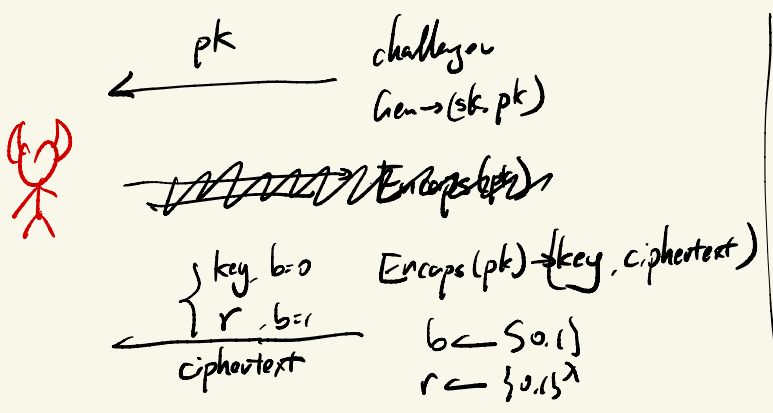 pk
challenger
Gen→(sk, pk)
Encaps(pk)
Encaps(pk)→(key, ciphertext)
{ key, b=0
r, b=1
ciphertext
b←{0,1}
r←{0,1}^λ